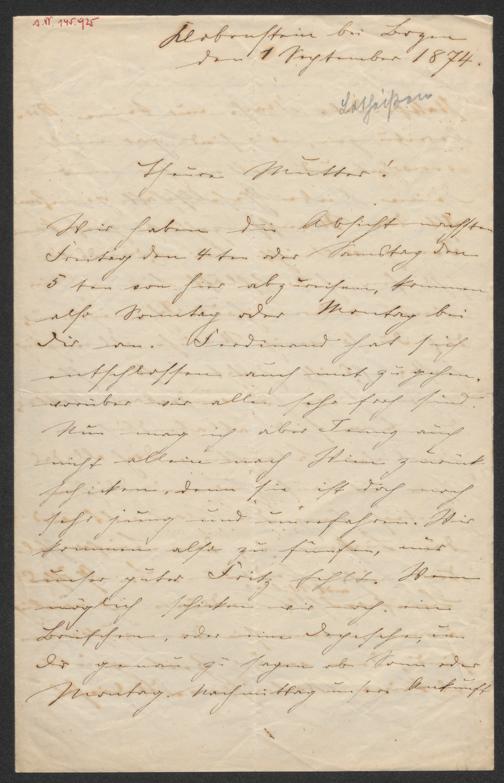 I.N. 145.925
Klobenstein bei Bozen
den 1 September 1874.
Lotheißen
Theure Mutter!
Wir haben die Absicht nächsten
Freitag den 4ten oder Samstag den
5ten von hier abzureisen, kommen
also Sonntag oder Montag bei
Dir an. Ferdinand hat sich
entschlossen auch mit zu gehen,
worüber wir alle sehr froh sind.
Nun mag ich aber Jenny auch
nicht allein nach Wien zurück
schicken, denn sie ist doch noch
sehr jung und unerfahren. Wir
kommen also zu fünfen, nur
unser guter Fritz fehlt. Wenn
möglich schicken wir noch ein
Briefchen, oder eine Depesche, um
Dir genau zu sagen ob Sonn oder
Montag. Nachmittag unsere Ankunft